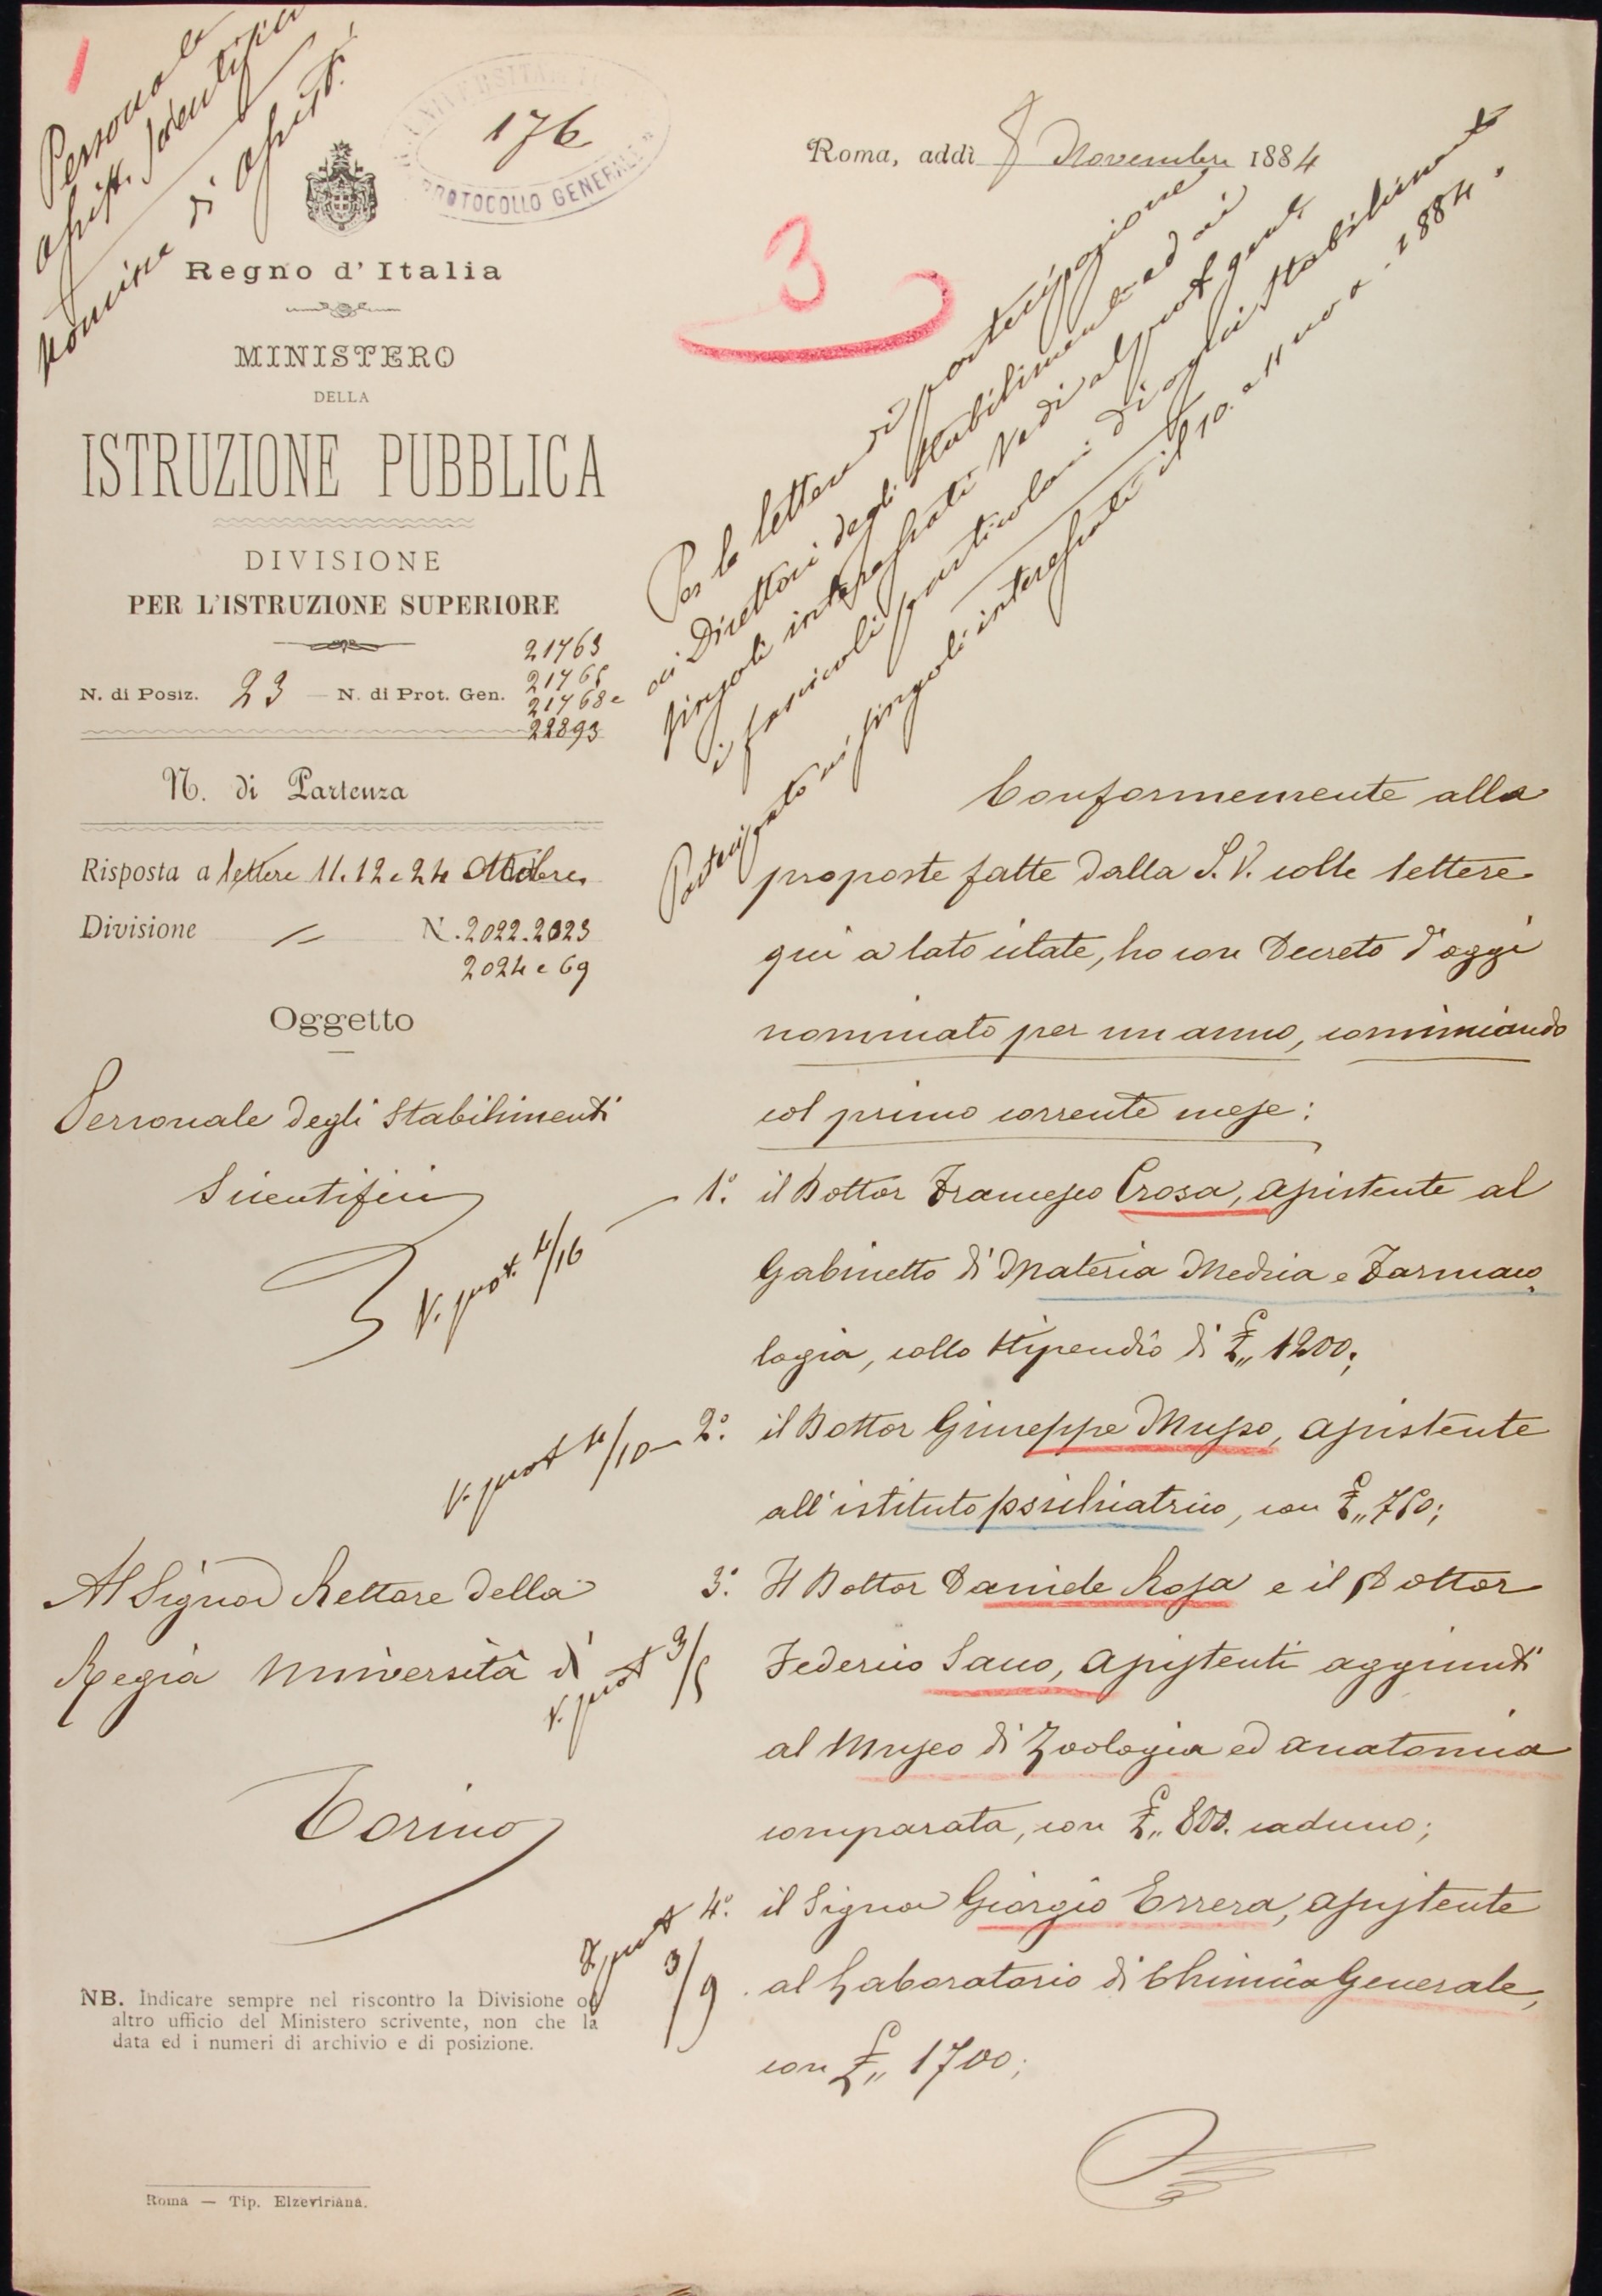 1
Personale
assist. scientifici
nomine di assist.i
UNIVERSITÀ
176
PROTOCOLLO GENERALE
Roma, addì 8 Novembre 1884
3
Regno d'Italia
MINISTERO
DELLA
ISTRUZIONE PUBBLICA
DIVISIONE
PER L'ISTRUZIONE SUPERIORE
21763
21765
N. di Posiz. 23 — N. di Prot. Gen. 21768 e
22893
N. di Partenza
Risposta a lettere 11.12 e 24 Ottobre
Divisione // N. 2022.2023
2024 e 69
Oggetto
Personale degli Stabilimenti
Scientifici
Al Signor Rettore della
Regia Università di
Torino
NB. Indicare sempre nel riscontro la Divisione od
altro ufficio del Ministero scrivente, non che la
data ed i numeri di archivio e di posizione.
Roma — Tip. Elzeviriana.
Per le lettere di partecipazione
ai Direttori degli stabilimenti ed ai
singoli interessati vedi al prot. gen.le
i fascicoli particolari di ogni stabilimento
Partecipato ai singoli interessati il 10. e 11 nov. 1884.
Conformemente alle
proposte fatte dalla S. V. colle lettere
qui a lato citate, ho con Decreto d'oggi
nominato per un anno, cominciando
col primo corrente mese:
1.° il Dottor Francesco Crosa, assistente al
Gabinetto di Materia Medica e Farmaco
logia, collo stipendio di £„ 1200;
V. prot. 4/16
2.° il Dottor Giuseppe Musso, assistente
all'istituto psichiatrico, con £„ 750;
V. prot 4/10
3.° Il Dottor Daniele Rosa e il Dottor
Federico Sacco, assistenti aggiunti
al Museo di Zoologia ed anatomia
comparata, con £„ 800. caduno;
V. prot 3/5
4.° il Signor Giorgio Errera, assistente
al Laboratorio di Chimica Generale,
con £„ 1700;
V. prot 3/9